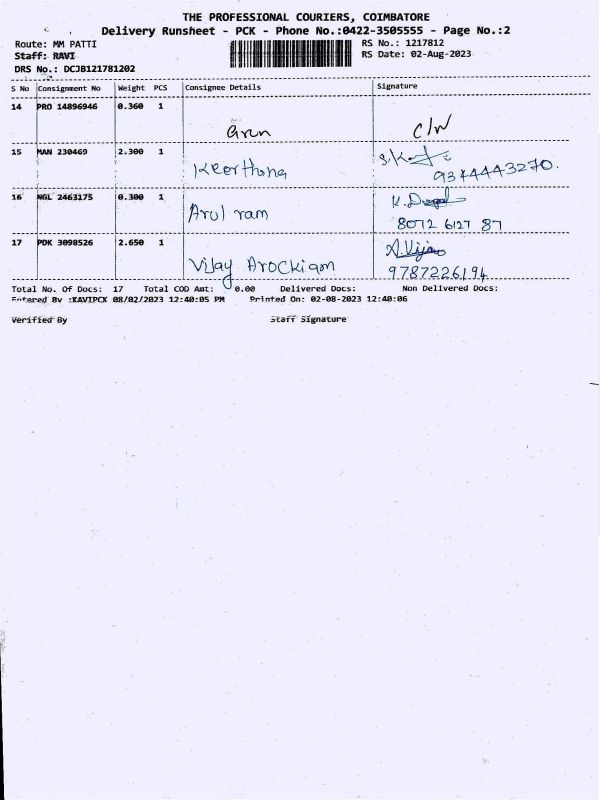 THE PROFESSIONAL COURIERS, COIMBATORE
Delivery Runsheet - PCK - Phone No.:0422-3505555 - Page No.:2
Route: MM PATTI
RS No.: 1217812
Staff: RAVI
RS Date: 02-Aug-2023
DRS No.: DCJB121781202
S No Consignment No Weight PCS Consignee Details Signature
14 PRO 14896946 0.360 1
C/W
15 MAN 230469 2.300 1
Keerthana
9344443270.
16 NGL 2463175 0.300 1
Arul ram
8072 6127 87
17 PDK 3098526 2.650 1
Vijay Arockiam
9787226194
Total No. Of Docs: 17 Total COD Amt: 0.00 Delivered Docs: Non Delivered Docs:
Entered By :KAVIPCK 08/02/2023 12:40:05 PM Printed On: 02-08-2023 12:40:06
Verified By Staff Signature